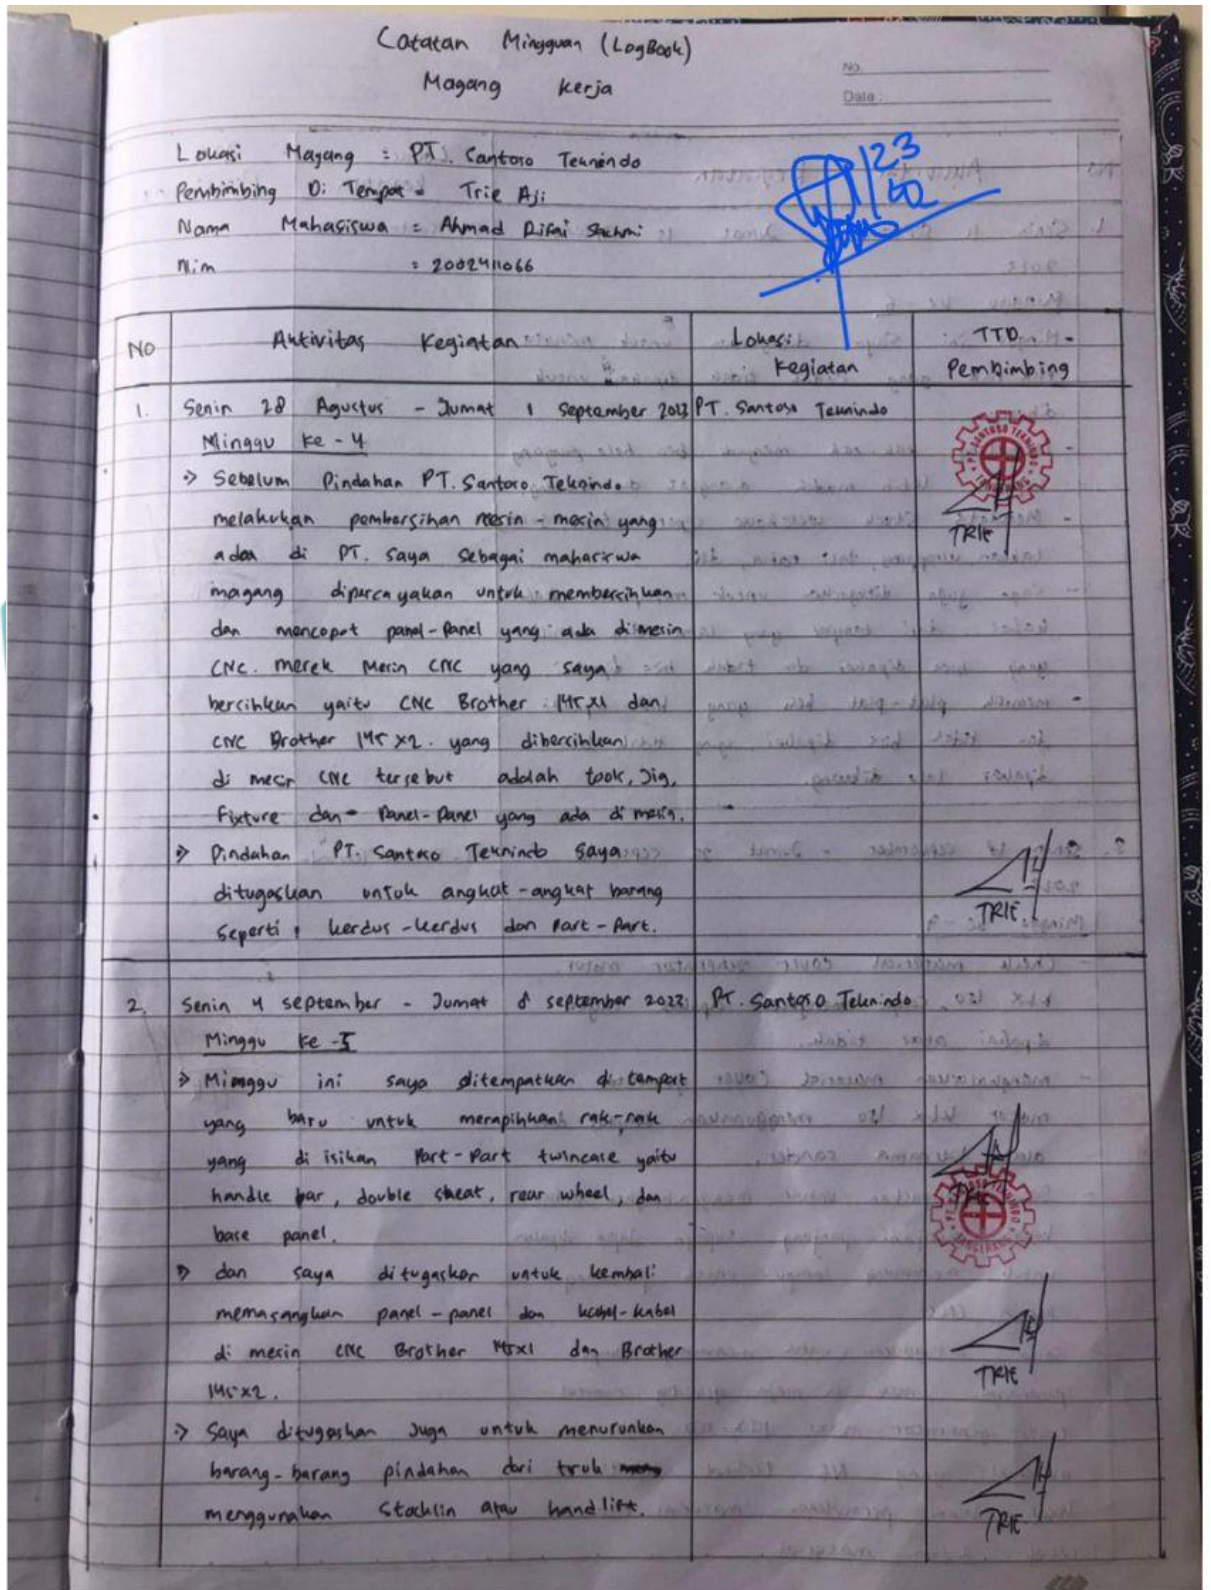 Catatan Mingguan (LogBook)
Magang Kerja
No.
Date :
Lokasi Magang : PT. Santoso Teknindo
Pembimbing Di Tempat = Trie Aji
Nama Mahasiswa : Ahmad Rifai
Nim : 2002411066
NO Aktivitas Kegiatan Lokasi Kegiatan TTD Pembimbing
1. Senin 28 Agustus - Jumat 1 September 2023 PT. Santoso Teknindo
Minggu Ke - 4
-> Sebelum Pindahan PT. Santoso Teknindo
melakukan pembersihan mesin - mesin yang
ada di PT. saya sebagai mahasiswa
magang dipercayakan untuk membersihkan
dan mencopot panel-Panel yang ada di mesin
CNC. merek Mesin CNC yang saya
bersihkan yaitu CNC Brother 145x1 dan
CNC Brother 145x2. yang dibersihkan
di mesin CNC tersebut adalah took, Jig,
Fixture dan Panel-Panel yang ada di mesin.
TRIE
-> Pindahan PT. Santoso Teknindo saya
ditugaskan untuk angkat-angkat barang
seperti, kerdus-kerdus dan Part-Part.
TRIE
2. Senin 4 september - Jumat 8 september 2023 PT. Santoso Teknindo
Minggu Ke -5
-> Minggu ini saya ditempatkan di tempat
yang baru untuk merapihkan rak-rak
yang di isikan Part-Part twincase yaitu
handle bar, double sheat, rear wheel, dan
base panel.
PT. SANTOSO TEKNINDO
TANGERANG
-> dan saya ditugaskan untuk kembali
memasangkan panel-panel dan kabel-kabel
di mesin CNC Brother 145x1 dan Brother
145x2.
TRIE
-> Saya ditugaskan Juga untuk menurunkan
barang-barang pindahan dari truk
menggunakan Stacklin atau handlift.
TRIE